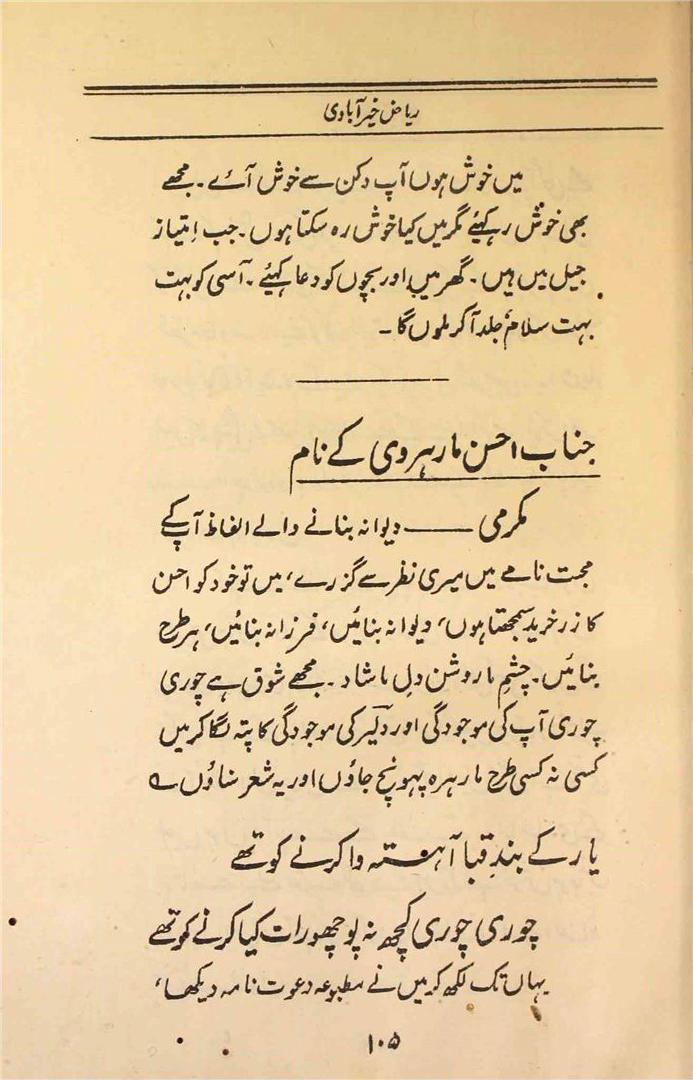 ریاض خیرآبادی
میں خوش ہوں آپ دکن سے خوش آئے۔ مجھے
بھی خوش رہ کہئے مگر میں کیا خوش رہ سکتا ہوں۔ جب امتیاز
جیل میں ہیں۔ گھر میں اور بچوں کو دعا کہئے۔ آسی کو بہت
بہت سلام، جلد آ کر ملوں گا۔
جناب احسن مارہروی کے نام
مکرمی ——— دیوانہ بنانے والے الفاظ آپ کے
محبت نامے میں میری نظر سے گزرے، میں تو خود کو احسن
کا زر خرید سمجھتا ہوں، دیوانہ بنائیں، فرزانہ بنائیں، ہر طرح
بنائیں۔ چشمِ ما روشن دلِ ما شاد۔ مجھے شوق ہے چوری
چوری آپ کی موجودگی اور دلگیر کی موجودگی کا پتہ لگا کر میں
کسی نہ کسی طرح مارہرہ پہونچ جاؤں اور یہ شعر سناؤں ؎
یار کے بندِ قبا آہستہ وا کرنے کو تھے
چوری چوری کچھ نہ پوچھو رات کیا کرنے کو تھے
یہاں تک لکھ کر میں نے مطبوعہ دعوت نامہ دیکھا،
۱۰۵